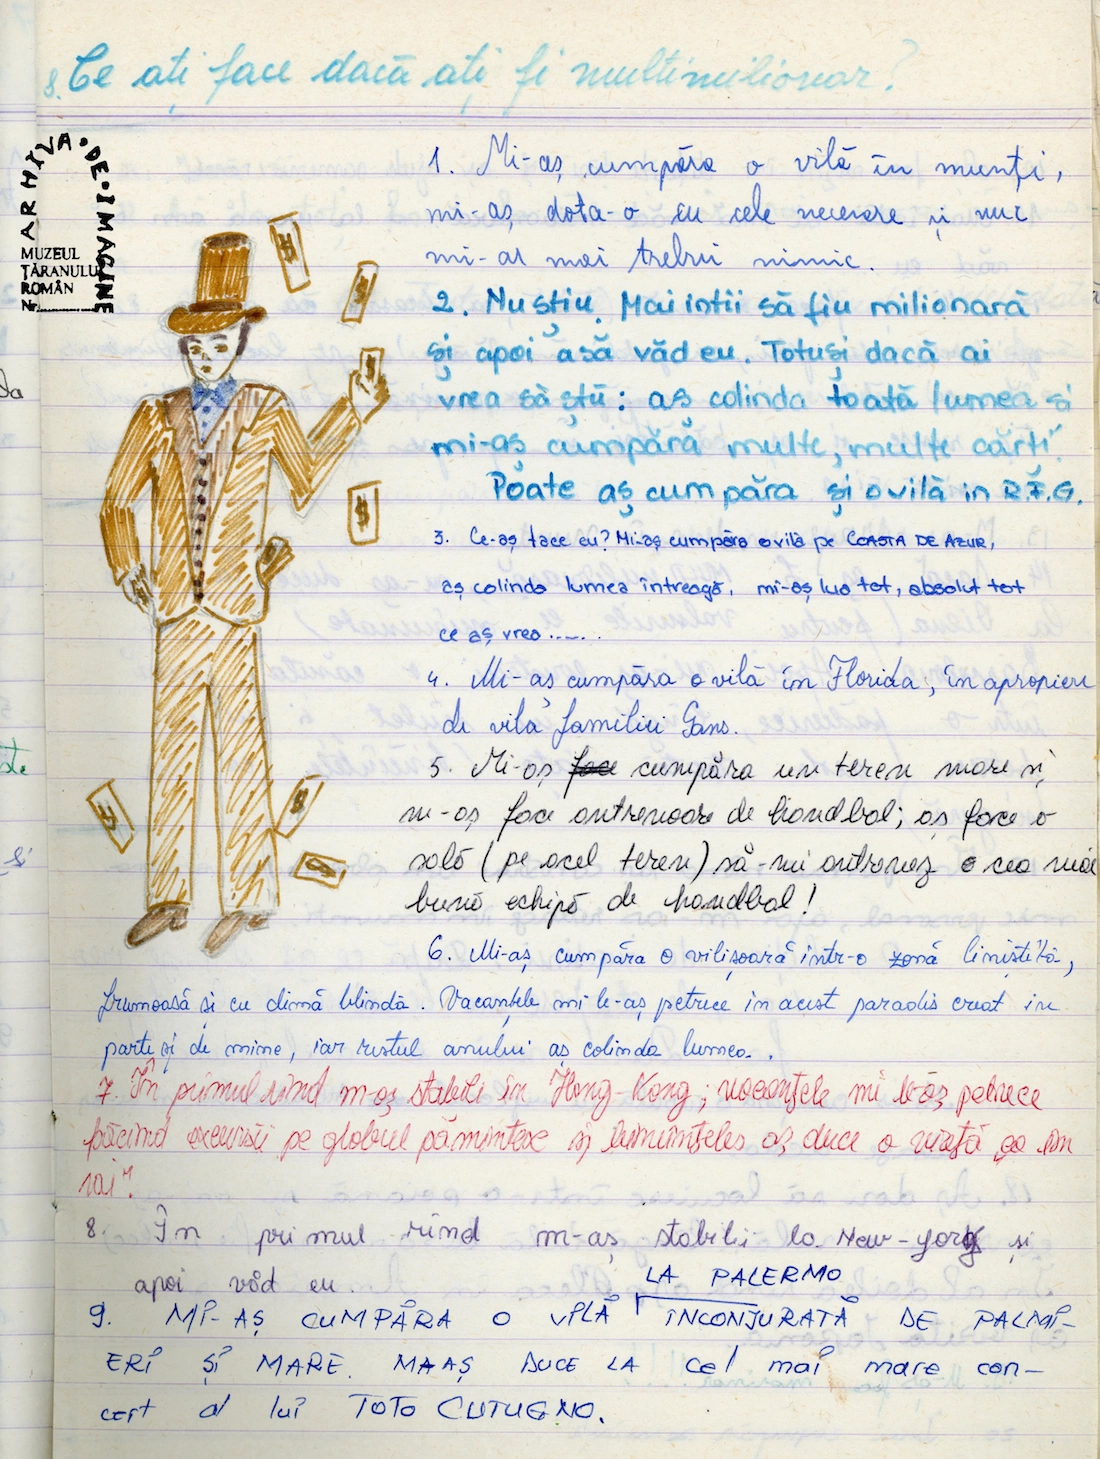 8. Ce ați face dacă ați fi multimilionar?
ARHIVA DE IMAGINE
MUZEUL
ȚĂRANULUI
ROMÂN
Nr.
1. Mi-aș cumpăra o vilă în munți,
mi-aș dota-o cu cele necesare și nu
mi-ar mai trebui nimic.
2. Nu știu. Mai intii să fiu milionară
și apoi așă văd eu. Totuși dacă ai
vrea să știi: aș colinda toată lumea și
mi-aș cumpără multe, multe cărți.
Poate aș cumpăra și o vilă in R.F.G.
3. Ce-aș face eu? Mi-aș cumpăra o vilă pe COASTA DE AZUR,
aș colinda lumea întreagă, mi-aș lua tot, absolut tot
ce aș vrea......
4. Mi-aș cumpăra o vilă în Florida, în apropiere
de vila familiei Gans.
5. Mi-aș face cumpăra un teren mare și
m-aș face antrenoare de handbal; aș face o
sală (pe acel teren) să-mi antrenez o cea mai
bună echipă de handbal!
6. Mi-aș cumpăra o vilișoară într-o zonă liniștită,
frumoasă și cu climă blindă. Vacanțele mi le-aș petrece in acest paradis creat in
parte și de mine, iar restul anului aș colinda lumea.
7. În primul rînd m-aș stabili în Hong-Kong; vacanțele mi le-aș petrece
făcînd excursii pe globul pămîntesc și aș duce o viață "ca în
rai".
8. În primul rînd m-aș stabili la New-York și
apoi văd eu.
LA PALERMO
9. MI-AȘ CUMPĂRA O VILĂ INCONJURATĂ DE PALMI-
ERI ȘI MARE. M-AȘ DUCE LA cel mai mare con-
cert al lui TOTO CUTUGNO.